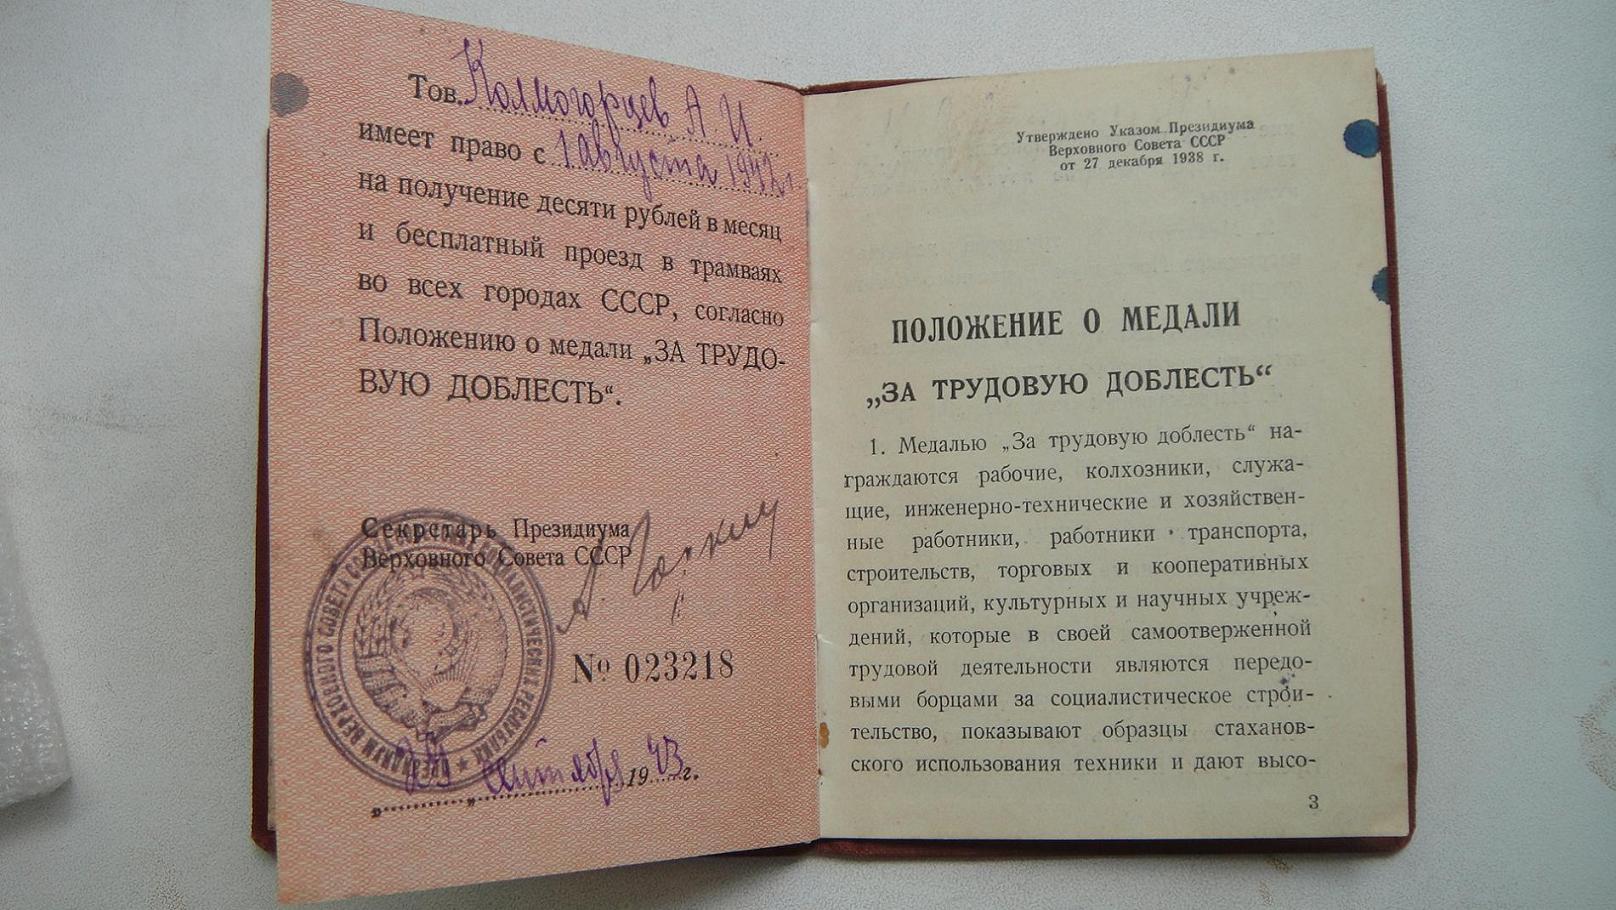 Тов. Колмогорцев А. И.
имеет право с 1 августа 1942 г.
на получение десяти рублей в месяц
и бесплатный проезд в трамваях
во всех городах СССР, согласно
Положению о медали „ЗА ТРУДО-
ВУЮ ДОБЛЕСТЬ“.
Секретарь Президиума
Верховного Совета СССР
А. Горкин
№ 023218
сентября 1943 г.
ПРЕЗИДИУМ ВЕРХОВНОГО СОВЕТА СОЮЗА СОВЕТСКИХ СОЦИАЛИСТИЧЕСКИХ РЕСПУБЛИК
Утверждено Указом Президиума
Верховного Совета СССР
от 27 декабря 1938 г.
ПОЛОЖЕНИЕ О МЕДАЛИ
„ЗА ТРУДОВУЮ ДОБЛЕСТЬ“
1. Медалью „За трудовую доблесть“ на-
граждаются рабочие, колхозники, служа-
щие, инженерно-технические и хозяйствен-
ные работники, работники транспорта,
строительств, торговых и кооперативных
организаций, культурных и научных учреж-
дений, которые в своей самоотверженной
трудовой деятельности являются передо-
выми борцами за социалистическое строи-
тельство, показывают образцы стаханов-
ского использования техники и дают высо-
3